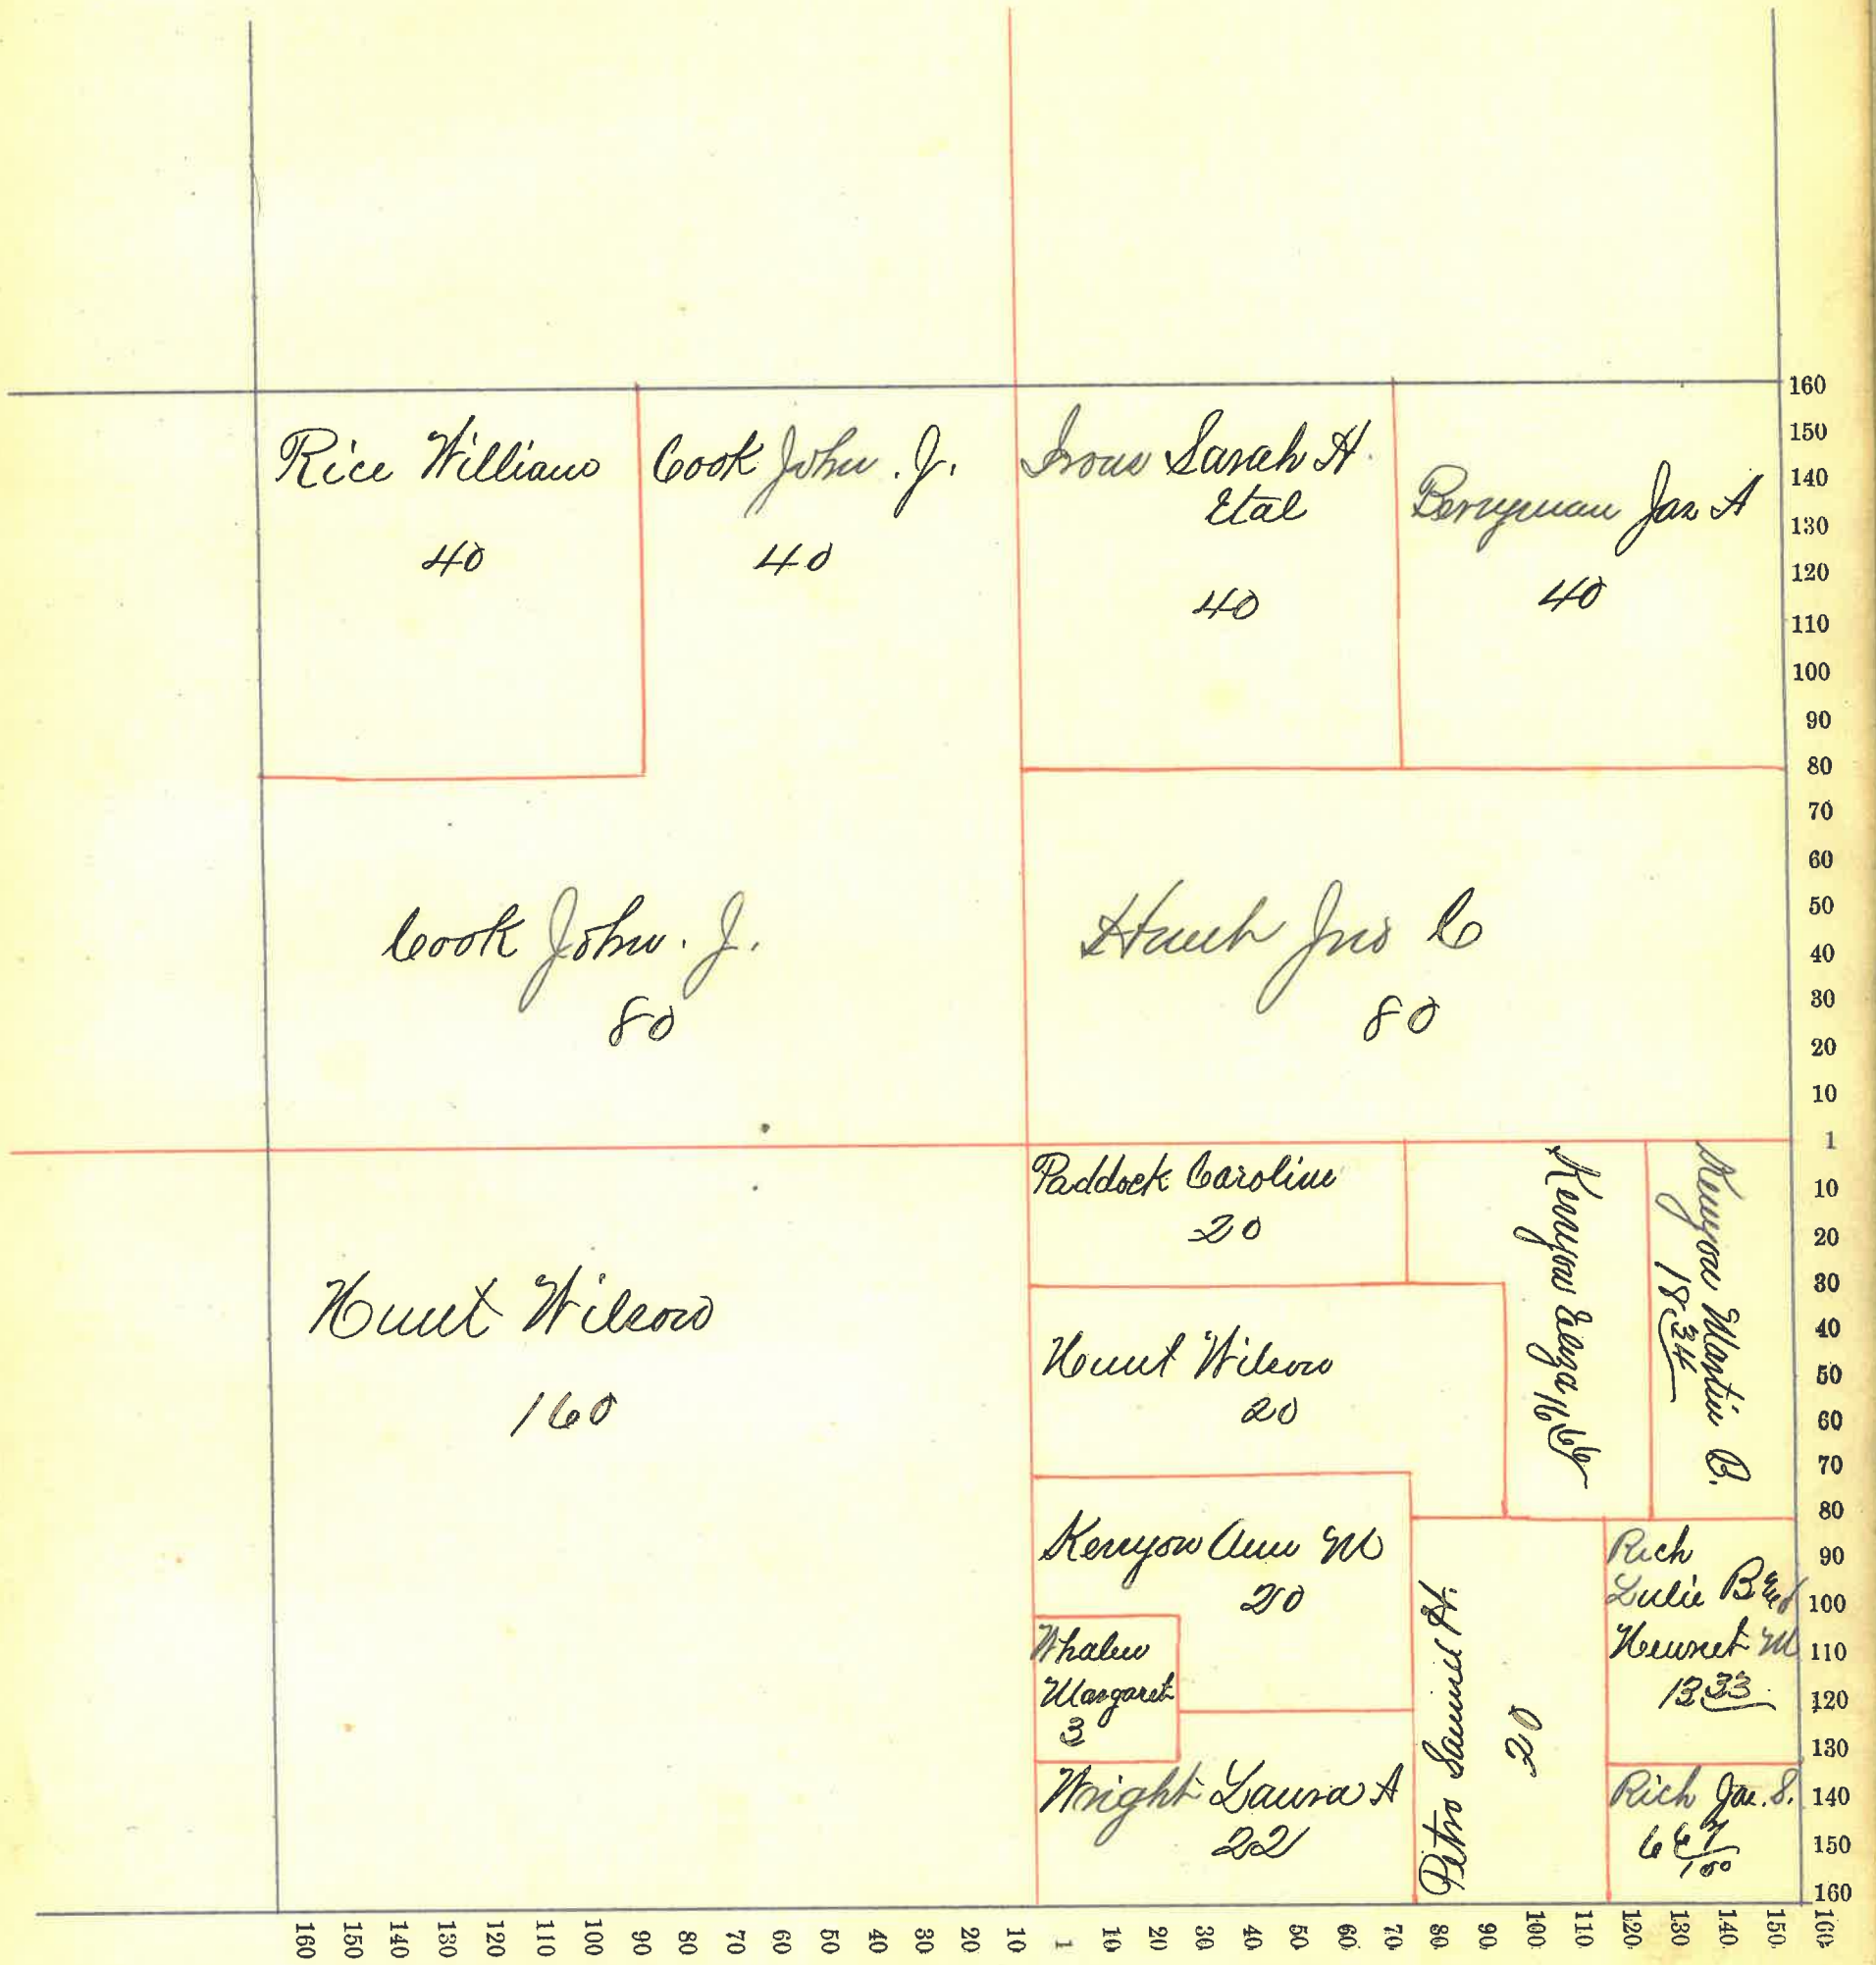 Rice William
40
Cook John. J.
40
Irons Sarah H.
Etal
40
Berryman Jas A
40
Cook John. J.
80
Jno C
80
Hunt Wilson
160
Paddock Caroline
20
Hunt Wilson
20
Kenyon Ann M
20
Whalen
Margaret
3
Wright Laura A
22
Kenyon 16 66
Kenyon Martin B.
18.34
Petro Samuel H.
20
Rich
Lulie B
M
13 33
Rich Jas. S.
6 67/100
160
150
140
130
120
110
100
90
80
70
60
50
40
30
20
10
1
10
20
30
40
50
60
70
80
90
100
110
120
130
140
150
160
160 150 140 130 120 110 100 90 80 70 60 50 40 30 20 10 1 10 20 30 40 50 60 70 80 90 100 110 120 130 140 150 160